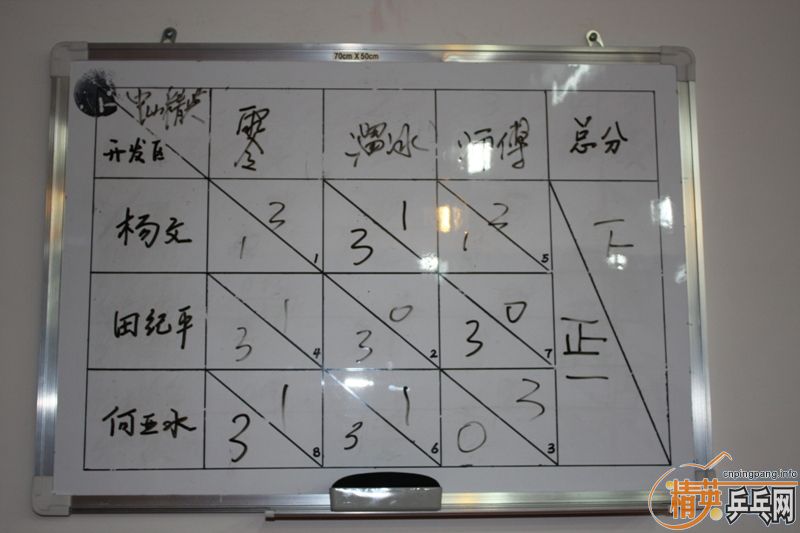 70cm X 50cm
中山精英
开发区
零 溜冰 师傅 总分
杨文 3 1 1 1 3 3 1 5 下
田纪平 1 3 4 0 3 2 0 3 7 正一
何亚水 1 3 8 1 3 6 3 0 3
cnpingpang.info
精英乒乓网